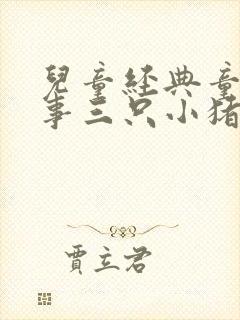 兒童經典童
事三只小猪
賈立君